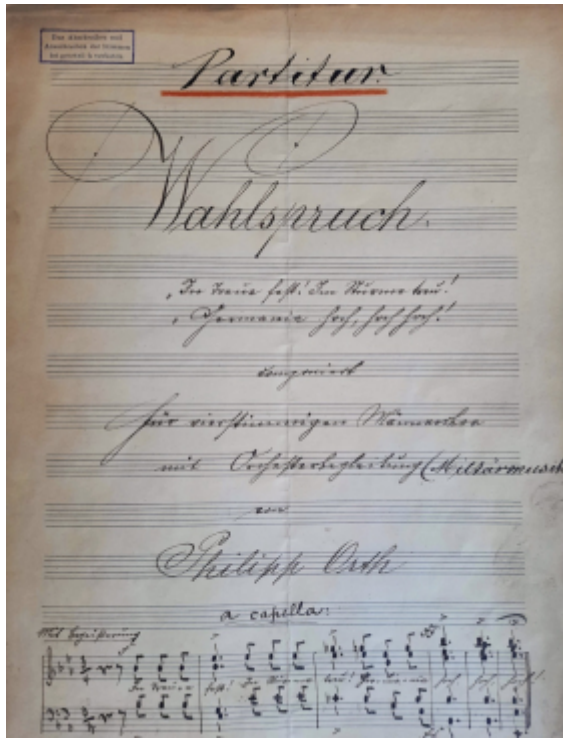 Das Abschreiben und
Ausschreiben der Stimmen
ist gesetzlich verboten.
Partitur.
Wahlspruch.
„In Treue fest! Im Sturme treu!
„Germania hoch, hoch hoch!
componiert
für vierstimmigen Männerchor
mit Orchesterbegleitung (Militärmusik
von
Philipp Orth
a capella:
Mit Begeisterung
In Treue fest! Im Sturme treu! Germania hoch hoch hoch!